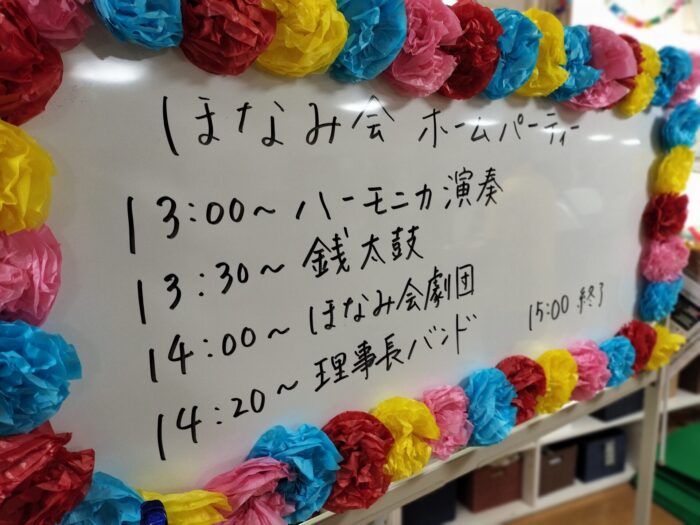 ほなみ会 ホームパーティー
13:00～ ハーモニカ演奏
13:30～ 銭太鼓
14:00～ ほなみ会劇団
14:20～ 理事長バンド
15:00 終了